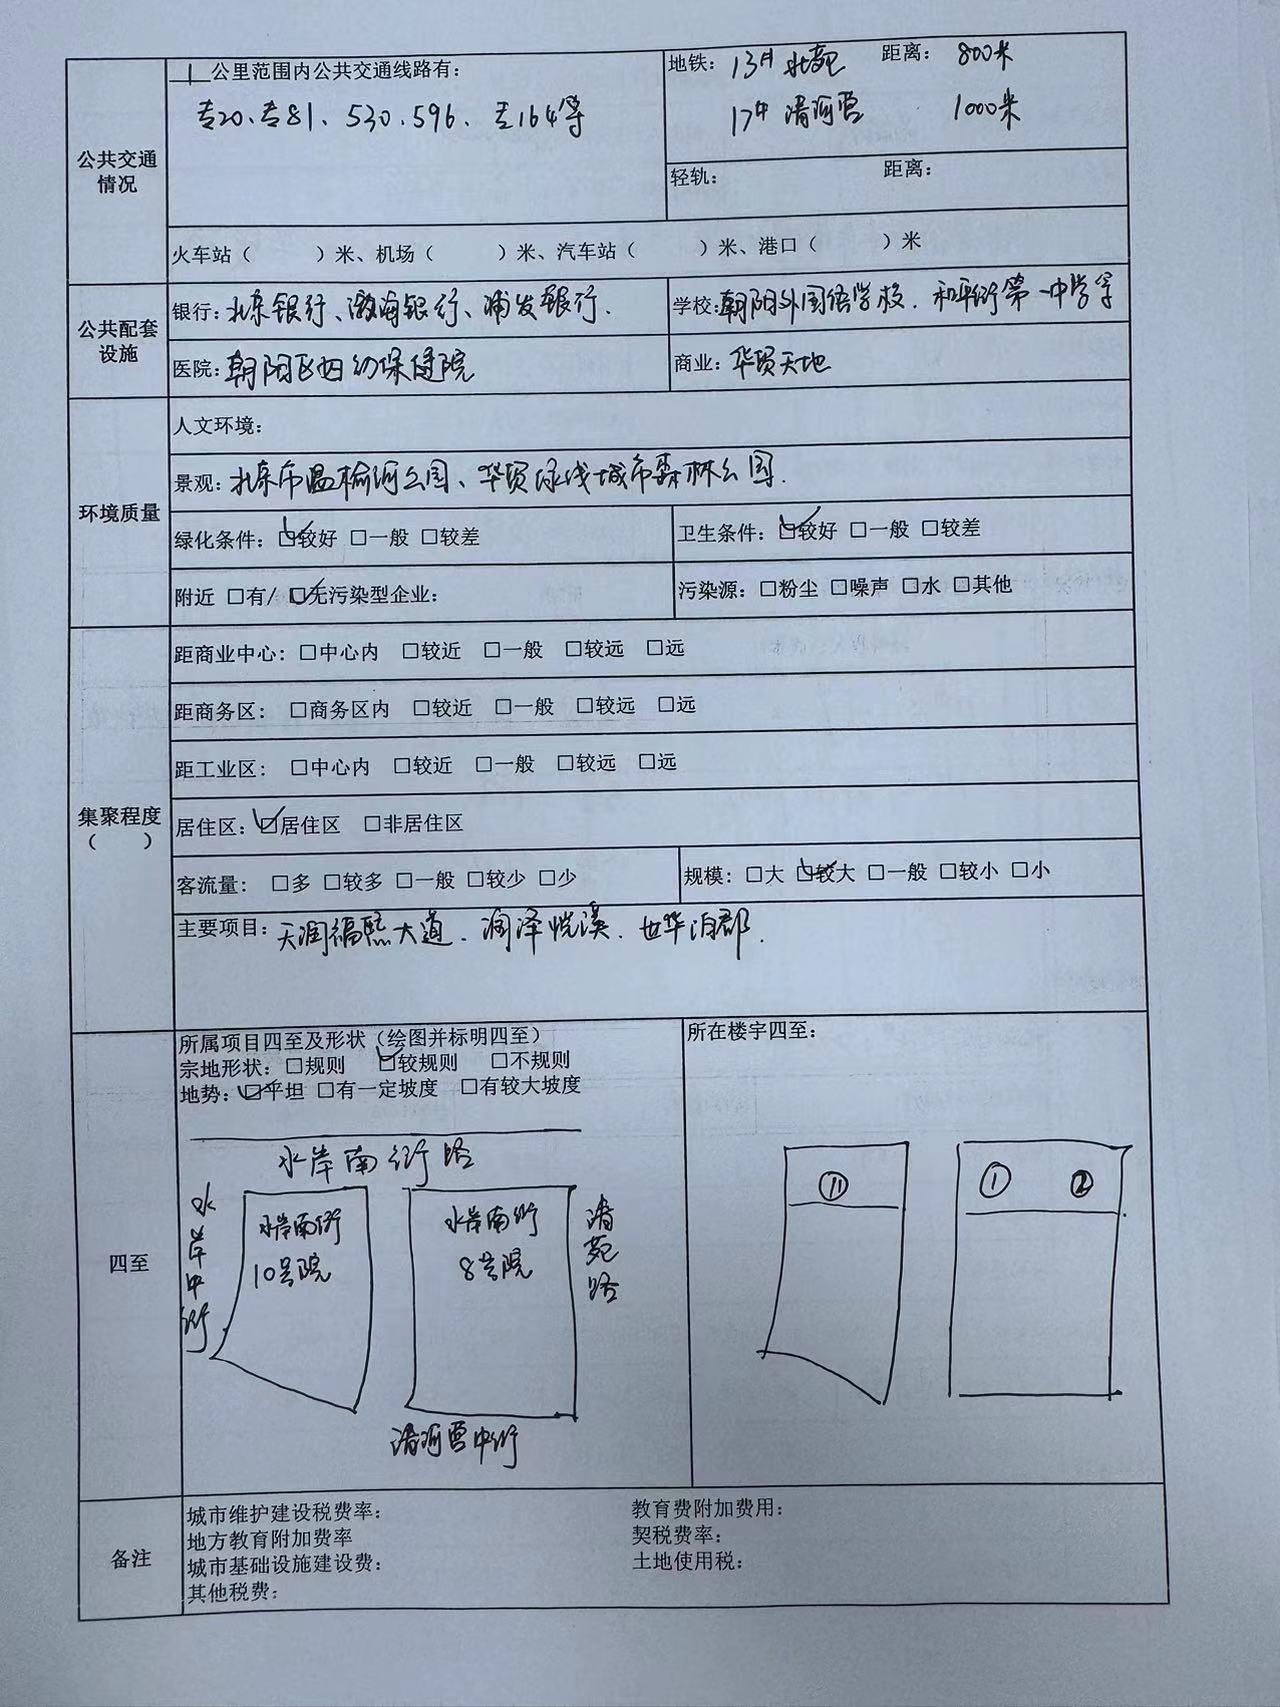 公共交通情况
1公里范围内公共交通线路有：
专20、专81、530、596、专164等
地铁：13# 北苑 距离：800米
17# 清河营 1000米
轻轨： 距离：
火车站（ ）米、机场（ ）米、汽车站（ ）米、港口（ ）米
公共配套设施
银行：北京银行、渤海银行、浦发银行.
学校：朝阳外国语学校、和平街第一中学等
医院：朝阳区妇幼保健院
商业：华贸天地
环境质量
人文环境：
景观：北京市温榆河公园、华贸绿线城市森林公园.
绿化条件：☑较好 □一般 □较差
卫生条件：☑较好 □一般 □较差
附近 □有/ ☑无污染型企业：
污染源：□粉尘 □噪声 □水 □其他
集聚程度
（ ）
距商业中心：□中心内 □较近 □一般 □较远 □远
距商务区： □商务区内 □较近 □一般 □较远 □远
距工业区： □中心内 □较近 □一般 □较远 □远
居住区：☑居住区 □非居住区
客流量： □多 □较多 □一般 □较少 □少
规模：□大 ☑较大 □一般 □较小 □小
主要项目：天润福熙大道、润泽悦溪、世华泊郡.
四至
所属项目四至及形状（绘图并标明四至）
宗地形状：□规则 ☑较规则 □不规则
地势：☑平坦 □有一定坡度 □有较大坡度
水岸南街路
水岸中街
水岸南街
10号院
水岸南街
8号院
清苑路
清河营中街
所在楼宇四至：
⑪
①
②
备注
城市维护建设税费率： 教育费附加费用：
地方教育附加费率 契税费率：
城市基础设施建设费： 土地使用税：
其他税费：